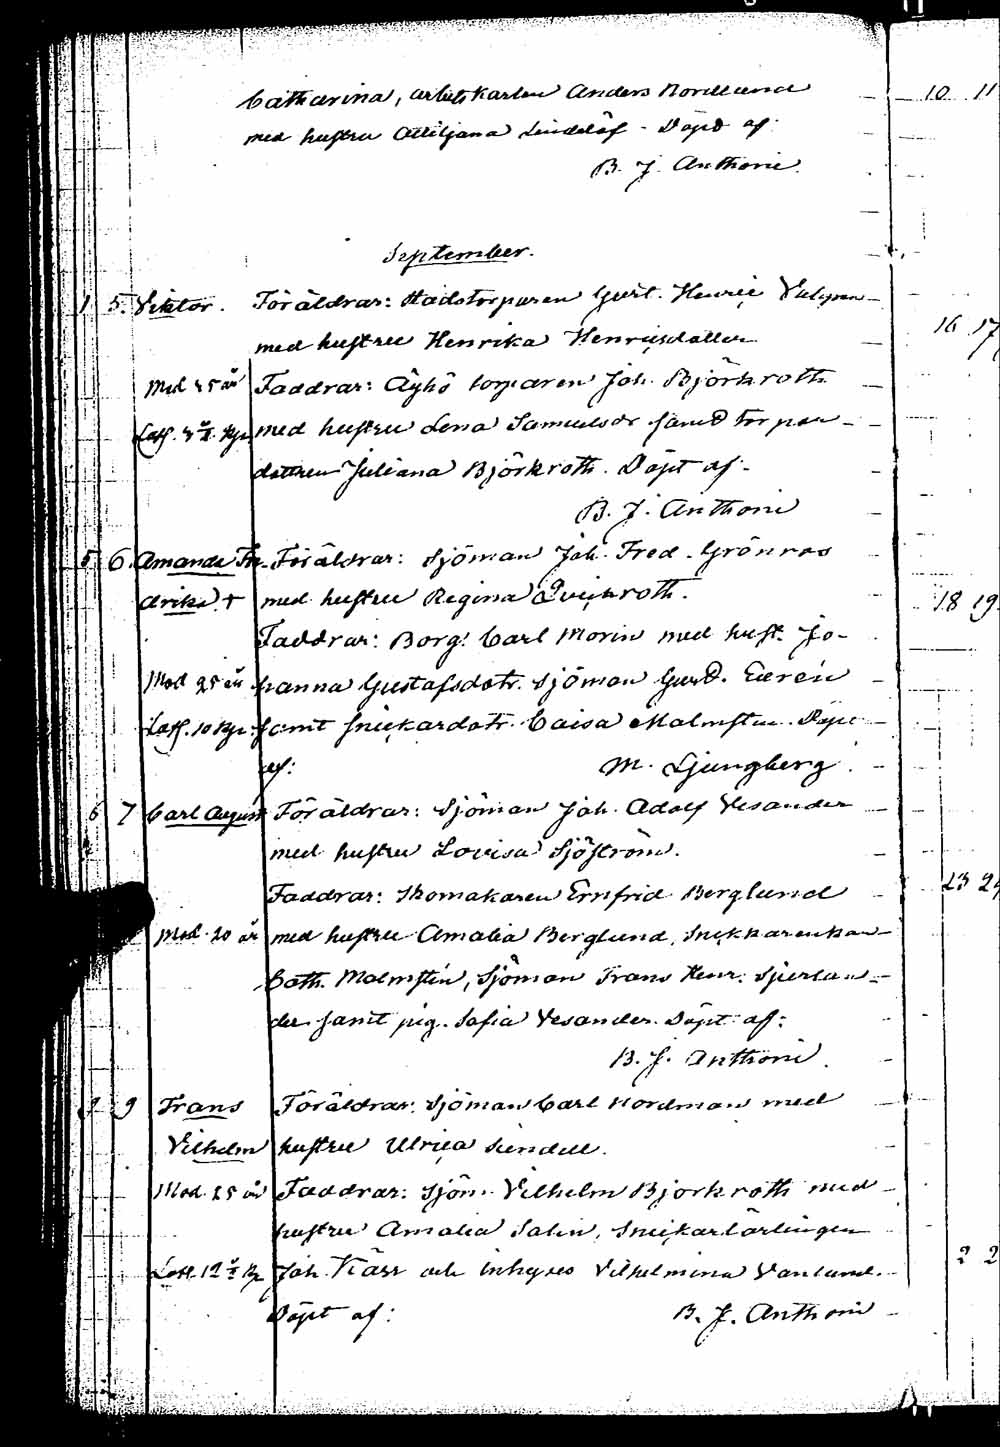 Catharina, arbetskarlen Anders Nordlund
med hustru Lindelöf - Döpt af:
B. J. Anthoni.
10 11
September.
1 5. Viktor. Föräldrar: Stadstorparen Gust. Henric
med hustru Henrika Henricsdotter
16 17
Mod. 25 år Faddrar: Äyhö torparen Joh. Björkroth
med hustru Lena Samuelsdr samt torpar-
dottren Juliana Björkroth. Döpt af-
B. J. Anthoni
5 6 Amanda Fre- Föräldrar: Sjöman Joh. Fred. Grönroos
drika. + med hustru Regina Qvickroth.
18 19
Faddrar: Borg. Carl Morin med hust. Jo-
Mod. 25 år hanna Gustafsdotr. Sjöman Gust.
samt snickardotr. Caisa Malmsten. Döpt
af: M. Ljungberg.
6 7 Carl August Föräldrar: Sjöman Joh. Adolf Vesander
med hustru Lovisa Sjöström.
Faddrar: Skomakaren Ernfrid Berglund
23 24
Mod. 20 år med hustru Amalia Berglund, Snickkarenkan
Cath. Malmstén, Sjöman Frans Henr. Sjerlan-
der samt pig. Sofia Vesander. Döpt af:
B. J. Anthoni.
9 9 Frans Föräldrar: Sjöman Carl Nordman med
Vilhelm hustru Ulrica Sundell.
Mod. 25 år Faddrar: Sjöm. Vilhelm Björkroth med
hustru Amalia Salin, Snickarlärlingen
2 2
Joh. och inhyses Vilhelmina Vanlund.
Döpt af: B. J. Anthoni